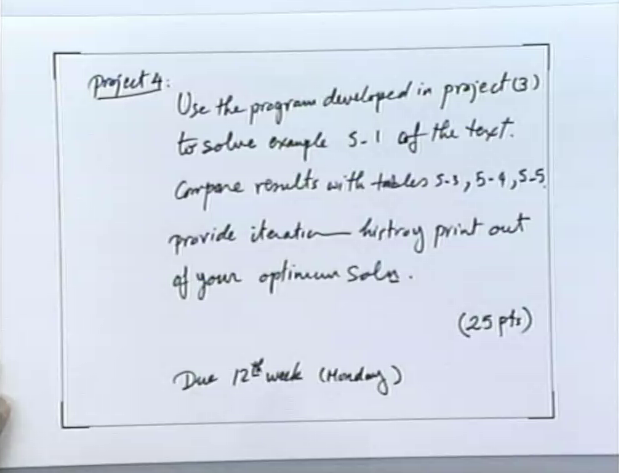 Project 4:
Use the program developed in project (3)
to solve example 5-1 of the text.
Compare results with tables 5-3, 5-4, 5-5.
provide iteration histroy print out
of your optimum soln.
(25 pts)
Due 12th week (Monday)